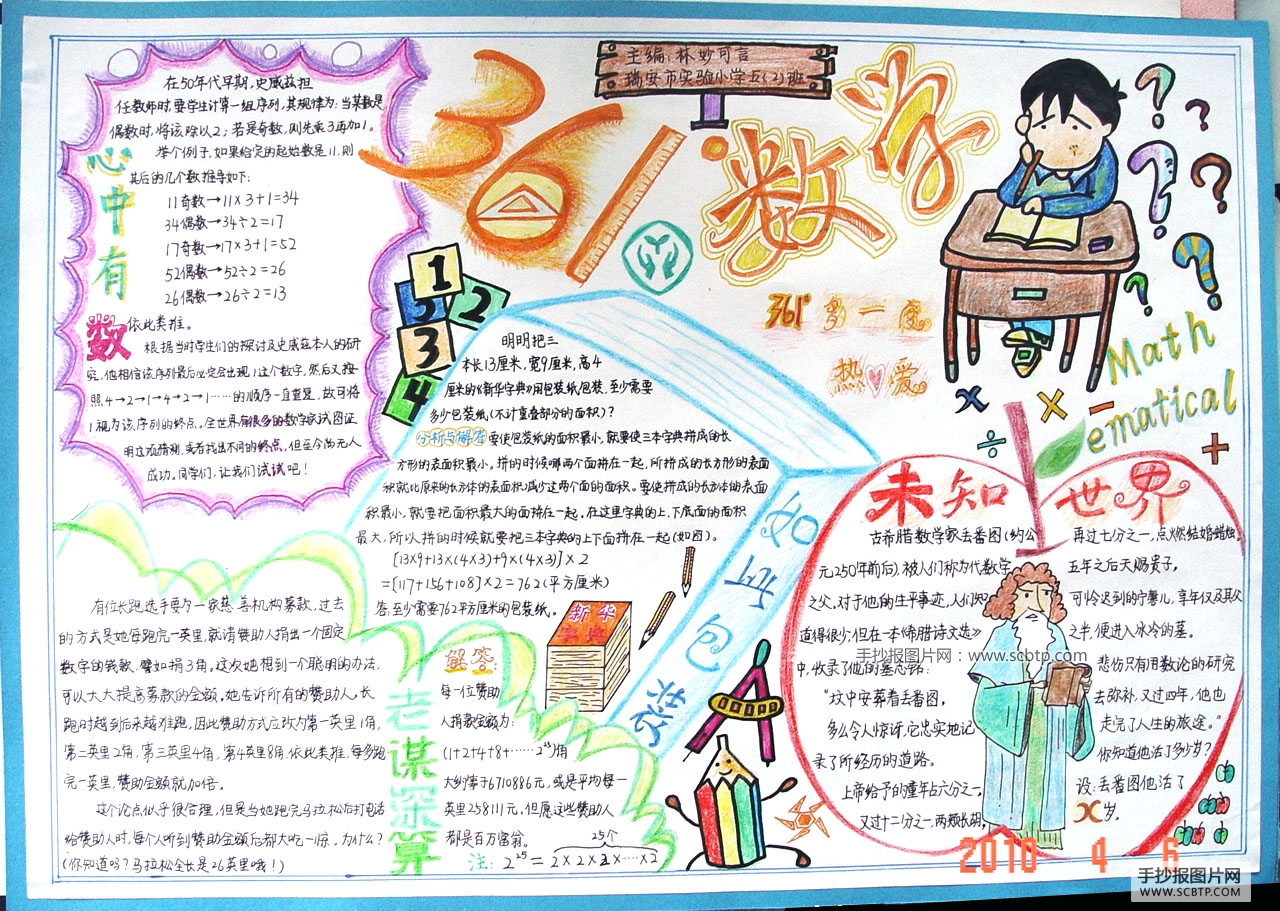 主编:林妙可言
瑞安市实验小学五(2)班
361°数学
361°多一度
热爱
Math
ematical
心中有数
在50年代早期,史威兹担
任教师时,要学生计算一组序列,其规律为:当某数是
偶数时,将该除以2;若是奇数,则先乘3再加1。
举个例子,如果给定的起始数是11,则
其后的几个数推导如下:
11奇数→11×3+1=34
34偶数→34÷2=17
17奇数→17×3+1=52
52偶数→52÷2=26
26偶数→26÷2=13
依此类推。
根据当时学生们的探讨及史威兹本人的研
究,他相信该序列最后必定会出现1这个数字,然后又按
照4→2→1→4→2→1……的顺序一直重复,故可将
1视为该序列的终点。全世界有很多的数学家试图证
明这项猜测,或者找出不同的终点,但至今尚无人
成功。同学们,让我们试试吧!
1
5
2
3
4
如此包装
明明把三
本长13厘米,宽9厘米,高4
厘米的《新华字典》用包装纸包装,至少需要
多少包装纸(不计重叠部分的面积)?
分析与解答 要使包装纸的面积最小,就要使三本字典拼成的长
方形的表面积最小。拼的时候哪两个面拼在一起,所拼成的长方形的表面
积就比原来的长方体的表面积减少这两个面的面积。要使拼成的长方体的表面
积最小,就要把面积最大的面拼在一起。在这里字典的上、下底面的面积
最大,所以拼的时候就要把三本字典的上下面拼在一起(如图)。
[13×9+13×(4×3)+9×(4×3)]×2
=[117+156+108]×2=762(平方厘米)
答:至少需要762平方厘米的包装纸。
新华
字典
老谋深算
有位长跑选手要为一家慈善机构募款,过去
的方式是她每跑完一英里,就请赞助人捐出一个固定
数字的钱款,譬如捐3角。这次她想到一个聪明的办法,
可以大大提高募款的金额。她告诉所有的赞助人,长
跑时越到后来越难跑,因此赞助方式应改为第一英里1角,
第二英里2角,第三英里4角,第4英里8角,依此类推,每多跑
完一英里,赞助金额就加倍。
这个论点似乎很合理,但是当她跑完马拉松后打电话
给赞助人时,每个人听到赞助金额后都大吃一惊。为什么?
(你知道吗?马拉松全长是26英里哦!)
解答:
每一位赞助
人捐款金额为:
(1+2+4+8+……2²⁵)角
大约等于6710886元,或是平均每一
英里258111元,但愿这些赞助人
都是百万富翁。
25个
注:2²⁵=2×2×2×……×2
未知世界
古希腊数学家丢番图(约公
元250年前后),被人们称为代数学
之父。对于他的生平事迹,人们知
道得很少;但在一本《希腊诗文选》
中,收录了他的墓志铭:
“坟中安葬着丢番图,
多么令人惊讶,它忠实地记
录了所经历的道路。
上帝给予的童年占六分之一,
又过十二分之一,两颊长胡,
再过七分之一,点燃结婚蜡烛。
五年之后天赐贵子,
可怜迟到的宁馨儿,享年仅及其父
之半,便进入冰冷的墓。
悲伤只有用数论的研究
去弥补,又过四年,他也
走完了人生的旅途。”
你知道他活了多少岁?
设:丢番图他活了
x岁。
手抄报图片网:www.scbtp.com
2010 4 6
手抄报图片网
WWW.SCBTP.COM